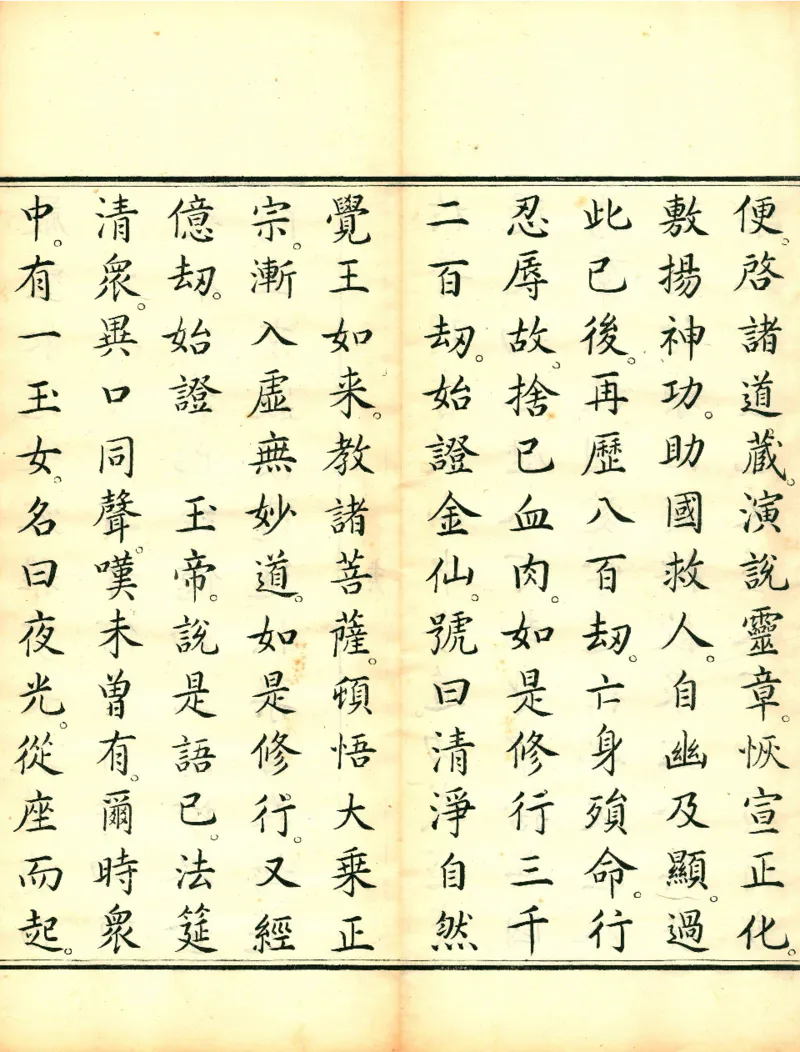 便。啓諸道藏。演說靈章。恢宣正化。
敷揚神功。助國救人。自幽及顯。過
此已後。再歷八百劫。亡身殞命。行
忍辱故。捨己血肉。如是修行三千
二百劫。始證金仙。號曰清淨自然
覺王如来。教諸菩薩。頓悟大乗正
宗。漸入虛無妙道。如是修行。又經
億劫。始證　玉帝。說是語已。法筵
清眾。異口同聲。嘆未曾有。爾時眾
中。有一玉女。名曰夜光。從座而起。